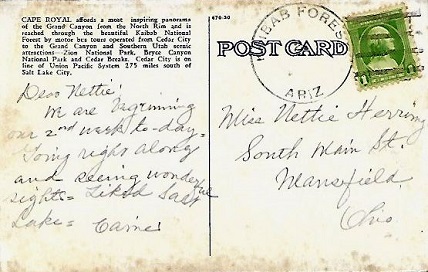 CAPE ROYAL affords a most inspiring panorama
of the Grand Canyon from the North Rim and is
reached through the beautiful Kaibab National
Forest by motor bus tours operated from Cedar City
to the Grand Canyon and Southern Utah scenic
attractions—Zion National Park, Bryce Canyon
National Park and Cedar Breaks. Cedar City is on
line of Union Pacific System 275 miles south of
Salt Lake City.
Dear Nettie!
We are beginning
our 2nd week to-day-
Going right along
and seeing wonderful
sights= Liked Salt
Lake=
676-30
POST CARD
KAIBAB FOREST
ARIZ
Miss Nettie Herring
South Main St.
Mansfield.
Ohio